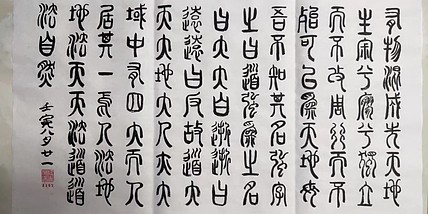 有物混成先天地
生寂兮寥兮獨立
而不改周行而不
殆可以爲天地母
吾不知其名強字
之曰道強爲之名
曰大大曰逝逝曰
遠遠曰反故道大
天大地大人亦大
域中有四大而人
居其一焉人法地
地法天天法道道
法自然
壬寅八月廿一